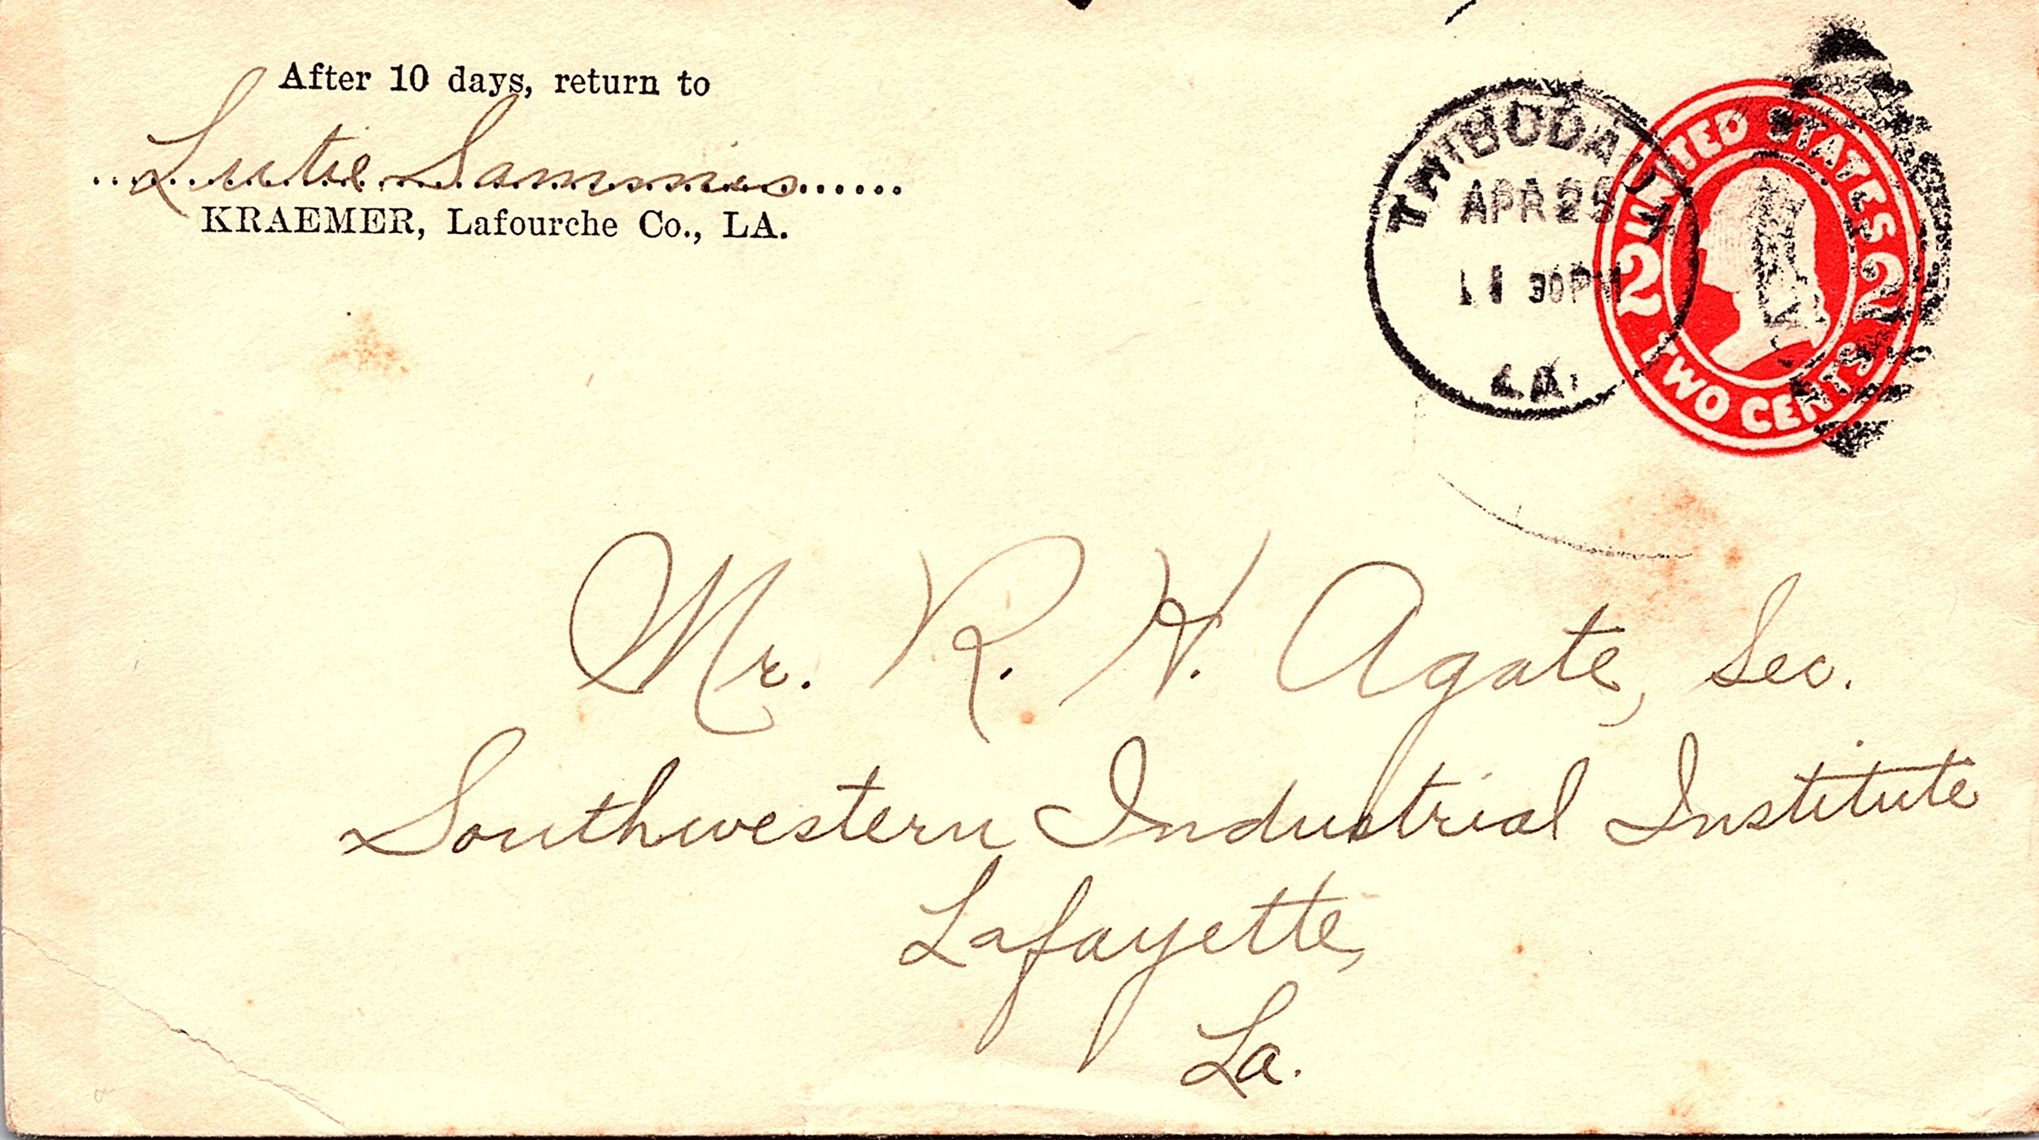 After 10 days, return to
Lutie Sammis
KRAEMER, Lafourche Co., LA.
THIBODAUX
APR 25
11 30PM
LA.
UNITED STATES
2 2
TWO CENTS
Mr. R. H. Agate, Sec.
Southwestern Industrial Institute
Lafayette,
La.